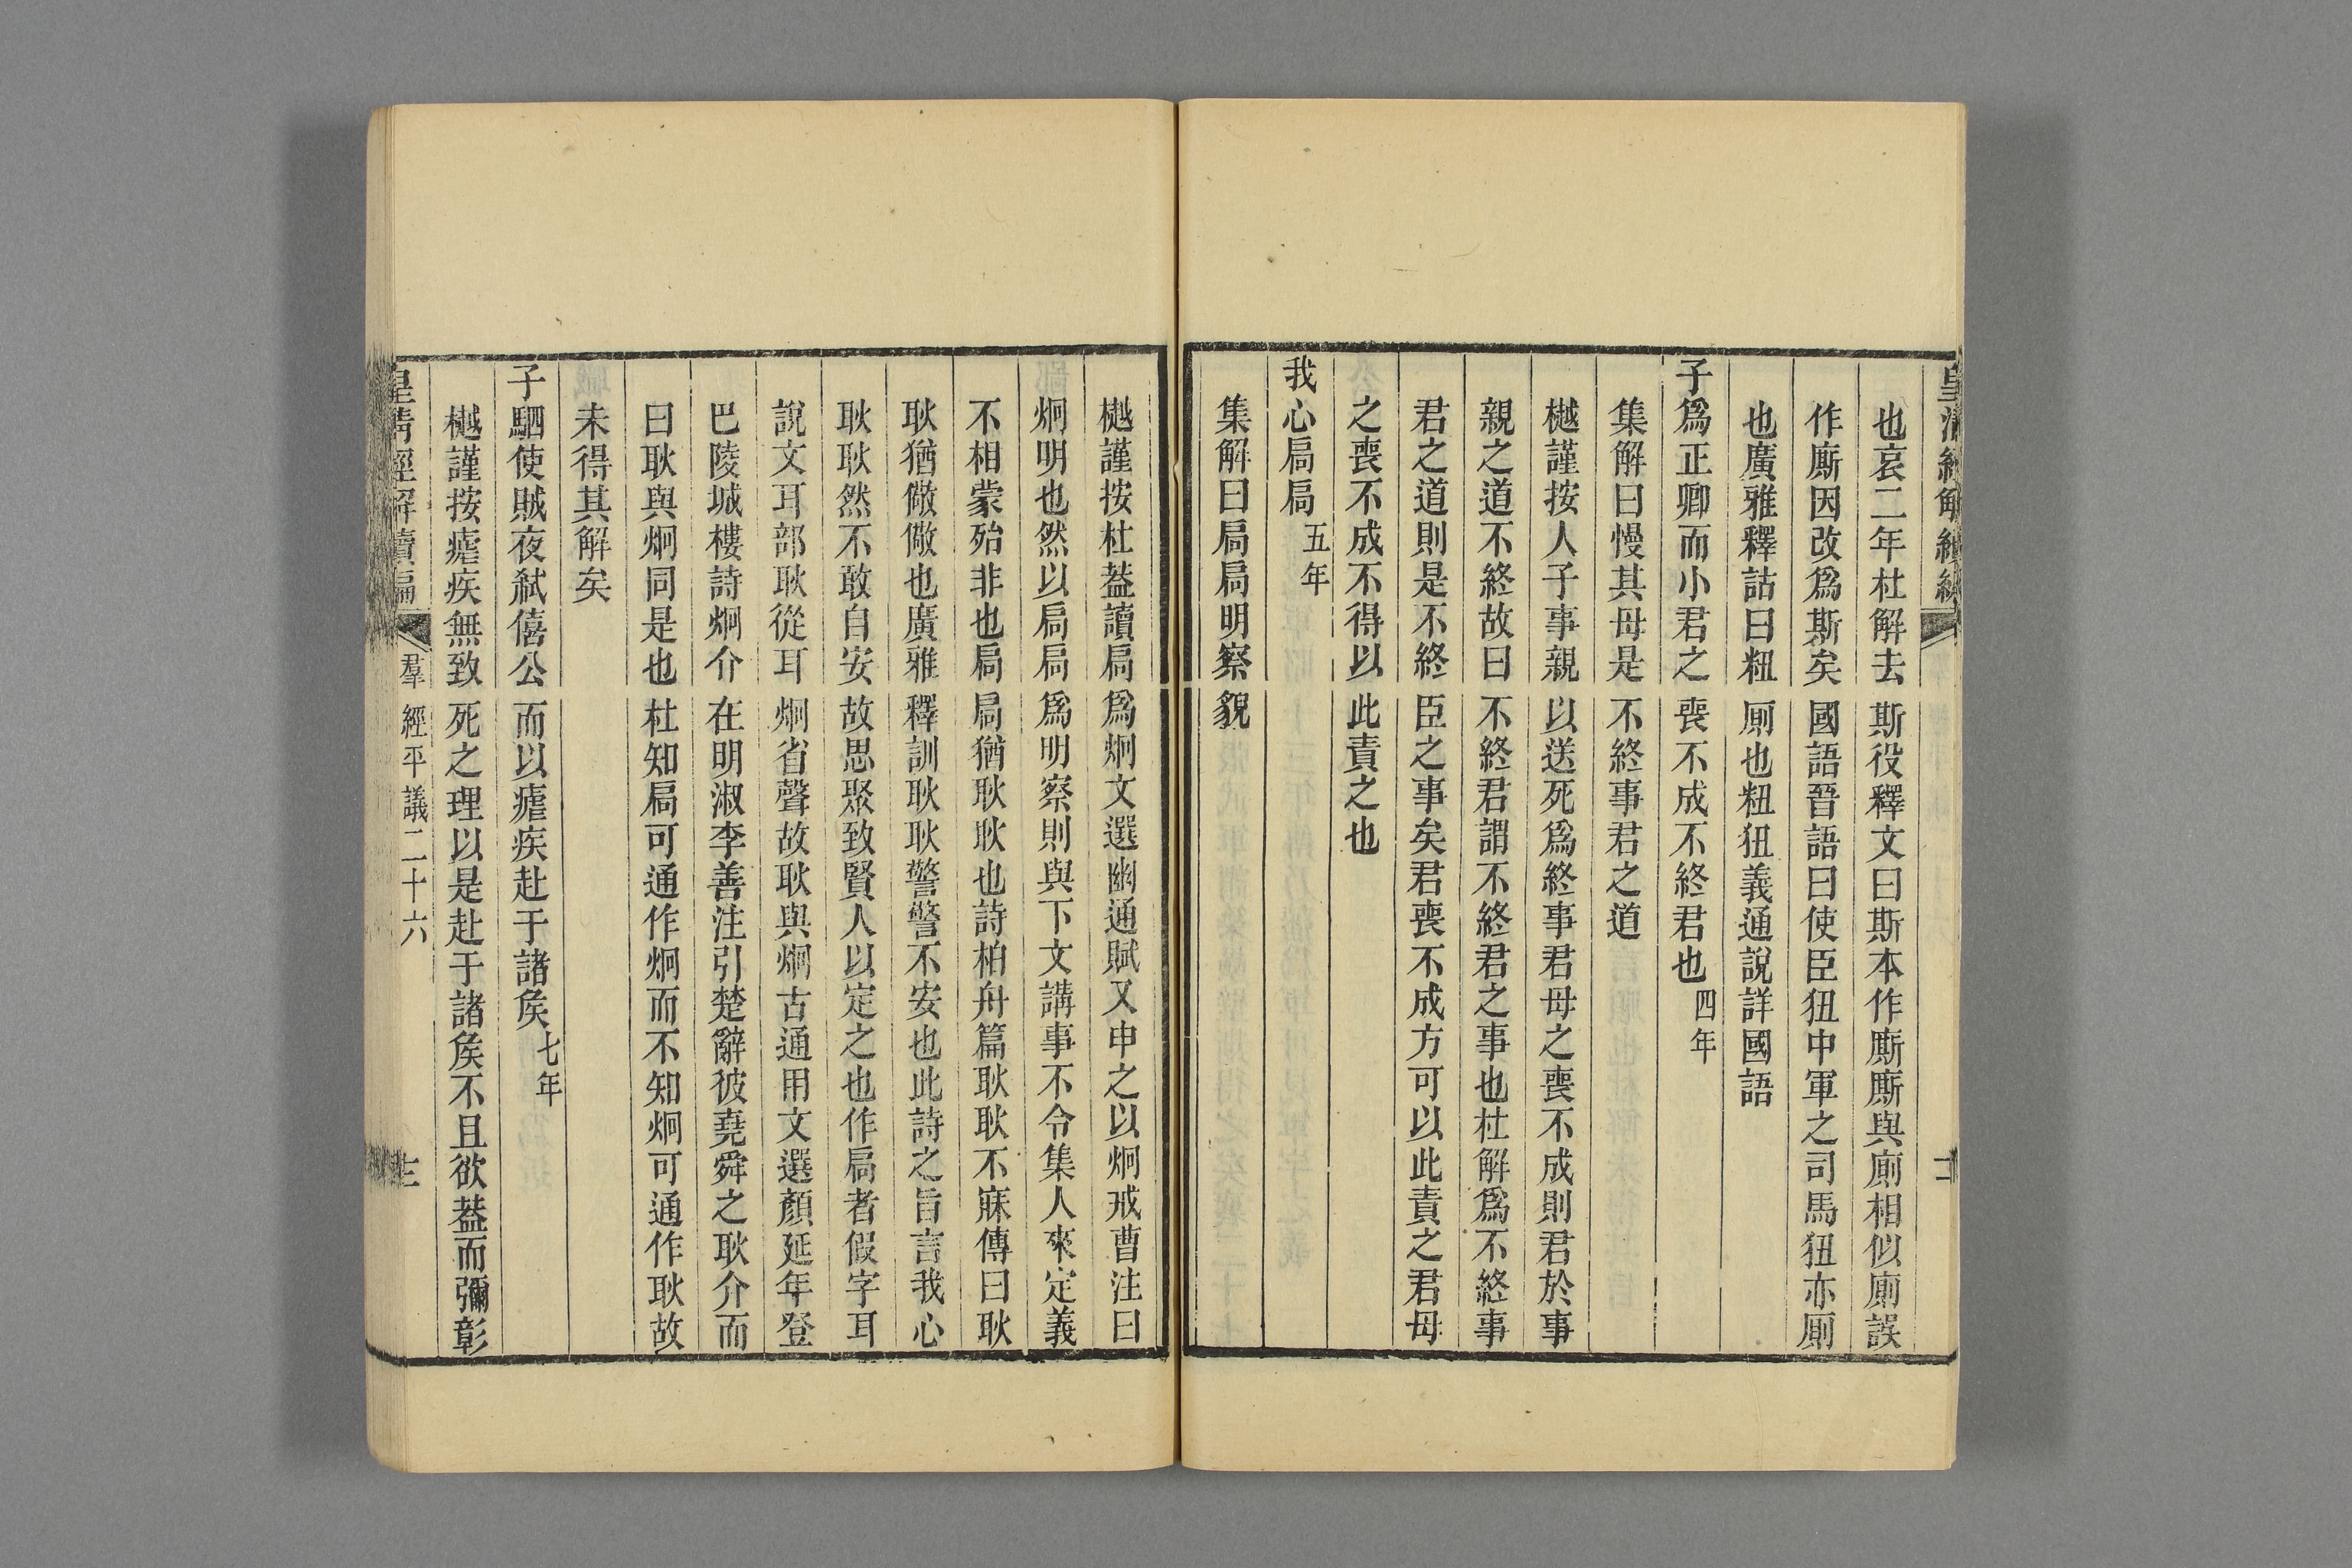 也哀二年杜解去斯役釋文曰斯本作廝廝與廁相似廁誤
作廝因改爲斯矣國語晉語曰使臣狃中軍之司馬狃亦厠
也廣雅釋詁曰粈厠也粈狃義通說詳國語
子爲正卿而小君之喪不成不終君也四年
集解曰慢其母是不終事君之道
樾謹按人子事親以送死爲終事君母之喪不成則君於事
親之道不終故曰不終君謂不終君之事也杜解爲不終事
君之道則是不終臣之事矣君喪不成方可以此責之君母
之喪不成不得以此責之也
我心扃扃五年
集解曰扃扃明察貌
樾謹按杜葢讀扃爲炯文選幽通賦又申之以炯戒曹注曰
炯明也然以扃扃爲明察則與下文講事不令集人來定義
不相蒙殆非也扃扃猶耿耿也詩柏舟篇耿耿不寐傳曰耿
耿猶儆儆也廣雅釋訓耿耿警警不安也此詩之旨言我心
耿耿然不敢自安故思聚致賢人以定之也作扃者假字耳
說文耳部耿從耳炯省聲故耿與炯古通用文選顏延年登
巴陵城樓詩炯介在明淑李善注引楚辭彼堯舜之耿介而
曰耿與炯同是也杜知扃可通作炯而不知炯可通作耿故
未得其解矣
子駟使賊夜弒僖公而以瘧疾赴于諸矦七年
樾謹按瘧疾無致死之理以是赴于諸矦不且欲葢而彌彰
皇清經解續編 羣經平議二十六